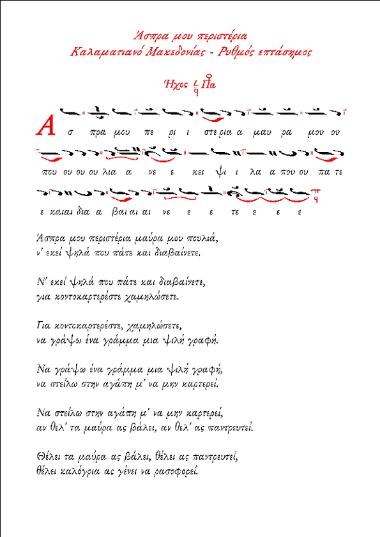 Άσπρα μου περιστέρια
Καλαματιανό Μακεδονίας - Ρυθμός επτάσημος
Ήχος Πα
Α σ πρα μου πε ρι στερια α μαυ ρα μου ου
που ου ου ου λια α νε ε κει ψι ι λα α που ου πα τε
ε και αι δια α βαι αι αι νε ε ε τε ε ε ε
Άσπρα μου περιστέρια μαύρα μου πουλιά,
ν' εκεί ψηλά που πάτε και διαβαίνετε.
Ν' εκεί ψηλά που πάτε και διαβαίνετε,
για κοντοκαρτερέστε χαμηλώσετε.
Για κοντοκαρτερέστε, χαμηλώσετε,
να γράψω ένα γράμμα μια ψιλή γραφή.
Να γράψω ένα γράμμα μια ψιλή γραφή,
να στείλω στην αγάπη μ' να μην καρτερεί.
Να στείλω στην αγάπη μ' να μην καρτερεί,
αν θελ' τα μαύρα ας βάλει, αν θελ' ας παντρευτεί.
Θέλει τα μαύρα ας βάλει, θέλει ας παντρευτεί,
θέλει καλόγρια ας γένει να ρασοφορεί.